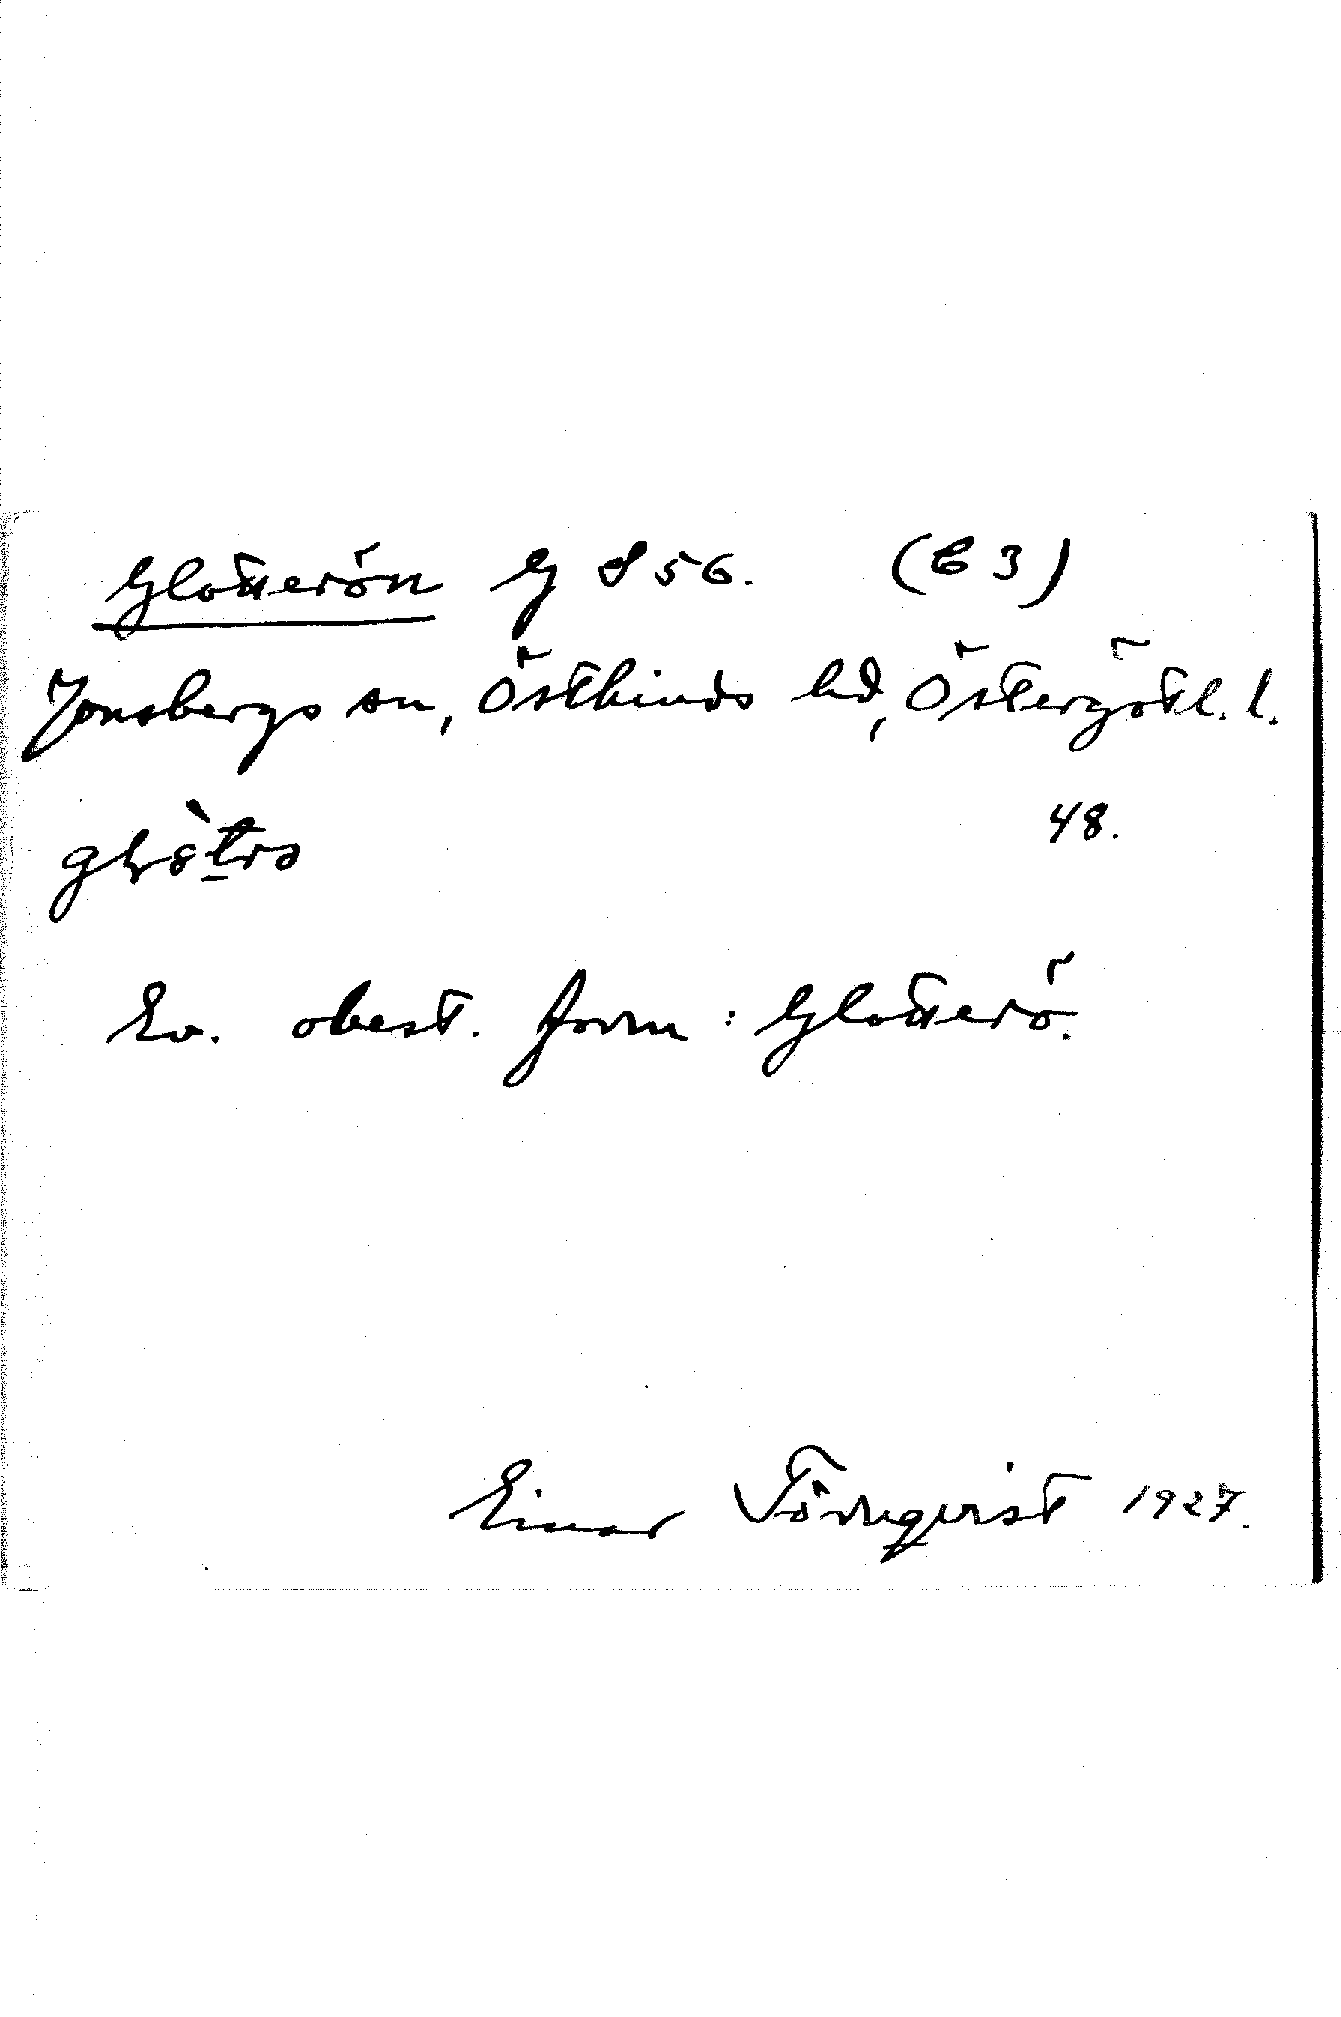 Glotterön G 856. (C 3)
Jonsbergs sn, Östkinds hd, Östergötl. l.
48.
Ev. obest. form: Glotterö.
Einar Törnqvist 1927.